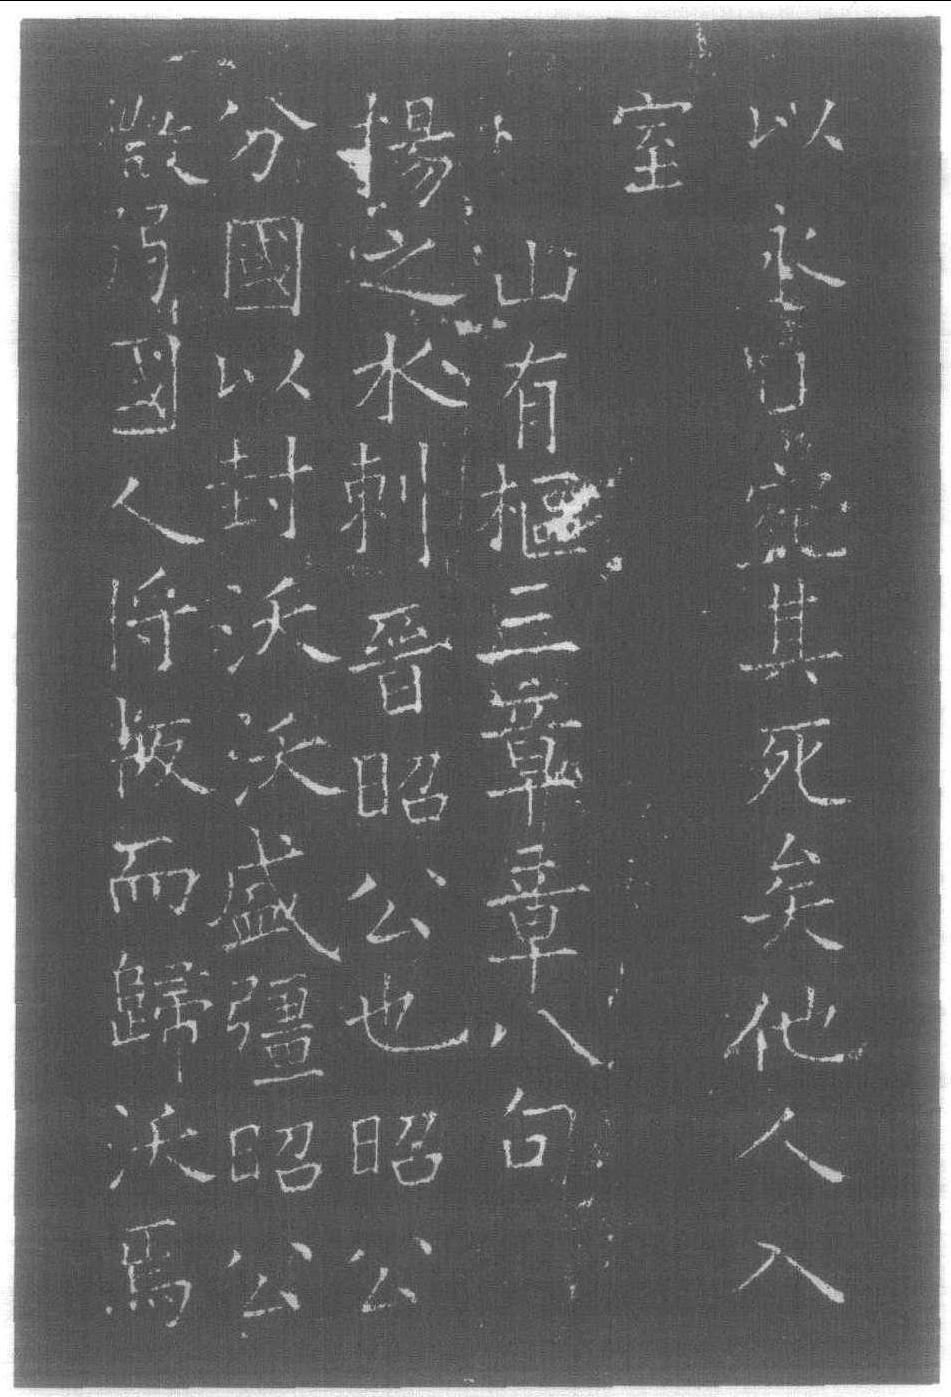 以永日宛其死矣他人入
室
山有樞三章章八句
揚之水刺晉昭公也昭公
分國以封沃沃盛彊昭公
微弱國人将叛而歸沃焉